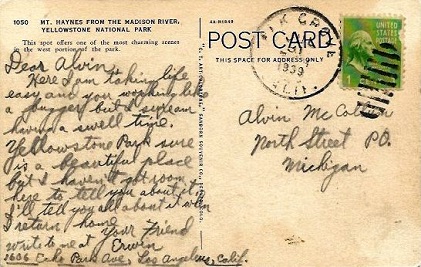 1050 MT. HAYNES FROM THE MADISON RIVER,
YELLOWSTONE NATIONAL PARK
This spot offers one of the most charming scenes
in the west portion of the park.
Dear Alvin,
Here I am taking life
easy and you working like
a bugger but I sure am
having a swell time.
Yellowstone Park sure
is a beautiful place
but I haven't got room
here to tell you about it.
I'll tell you all about it when
I return home.
Your Friend
Erwin
write to me at
2606 Park Ave, Los Angeles, Calif.
POST CARD
THIS SPACE FOR ADDRESS ONLY
1939
UNITED STATES
POSTAGE
1
Alvin
North Street P.O.
Michigan